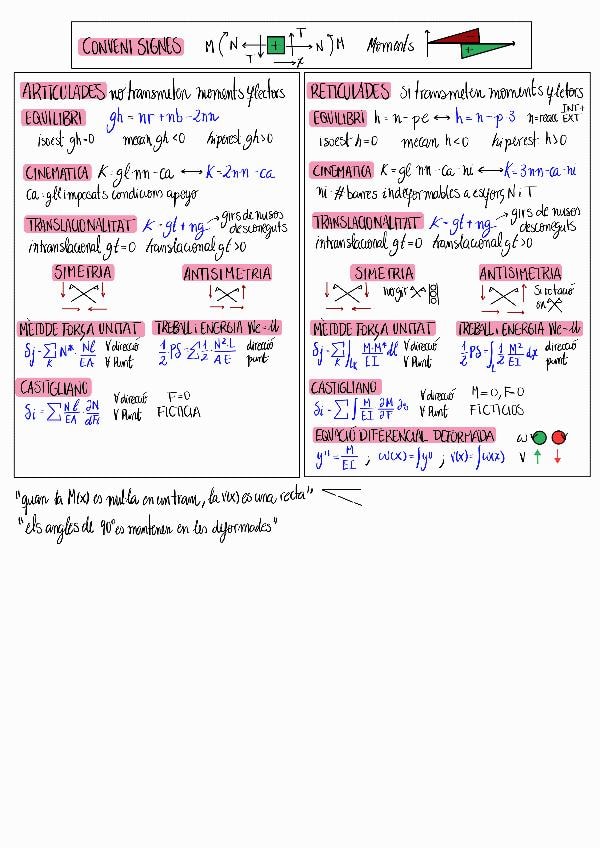 CONVENI SIGNES M N T + T N M x Moments +
ARTICULADES no transmeten moments flectors
EQUILIBRI gh = nr + nb - 2nn
isoest gh=0 mecan gh<0 hiperest gh>0
CINEMÀTICA K = gl·nn - ca ↔ K = 2nn - ca
ca: gll imposats condicions apoyo
TRANSLACIONALITAT K = gt + ng → girs de nusos desconeguts
intranslacional gt=0 translacional gt>0
SIMETRIA ANTISIMETRIA
MÈTODE FORÇA UNITAT TREBALL i ENERGIA We = U
δj = ∑ N* · Nl/EA ∀ direcció ∀ Punt 1/2 Pδ = ∑ 1/2 · N²·L/AE direcció punt
K
CASTIGLIANO
δi = ∑ Nl/EA ∂N/∂Fi ∀ direcció ∀ Punt F=0 FICTICIA
RETICULADES Si transmeten moments flectors
EQUILIBRI h = n - pe ↔ h = n - p·3 n=reacc INT+ EXT
isoest h=0 mecan h<0 hiperest h>0
CINEMÀTICA K = gl·nn - ca - ni ↔ K = 3nn - ca - ni
ni: # barres indeformables a esforç N i T
TRANSLACIONALITAT K = gt + ng → girs de nusos desconeguts
intranslacional gt=0 translacional gt>0
SIMETRIA ANTISIMETRIA
no gir Si rotació
MÈTODE FORÇA UNITAT TREBALL i ENERGIA We = U
δj = ∑ ∫ M·M*/EI dl ∀ direcció ∀ Punt 1/2 Pδ = ∫ 1/2 M²/EI dx direcció punt
CASTIGLIANO
δi = ∑ ∫ M/EI ∂M/∂F ds ∀ direcció ∀ Punt M=0, F=0 FICTICIOS
EQUACIÓ DIFERENCIAL DEFORMADA ω
y'' = M/EI ; ω(x) = ∫y'' ; v(x) = ∫ω(x) V ↑ ↓
"quan la M(x) es nul·la en un tram, la v(x) es una recta"
"els angles de 90° es mantenen en les deformades"